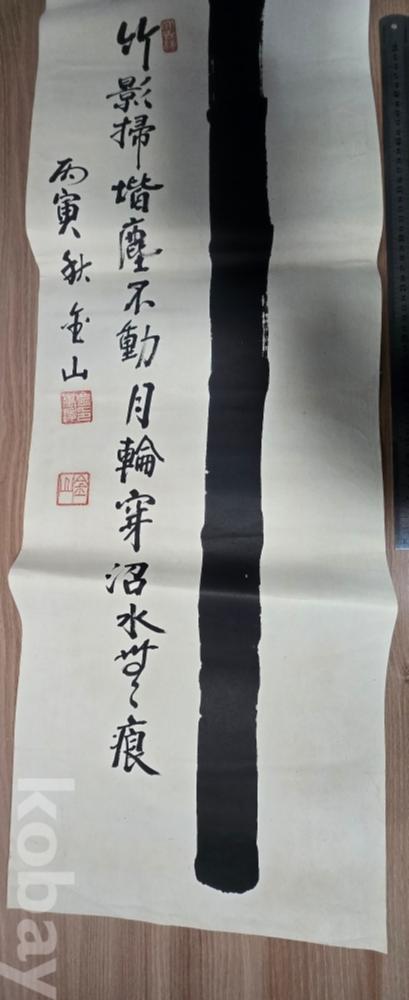 竹影掃堦塵不動月輪穿沼水無痕
丙寅秋金山
金山
kobay